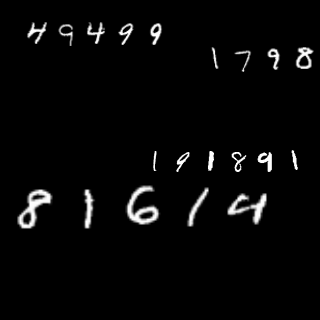 49499
1798
191891
81614